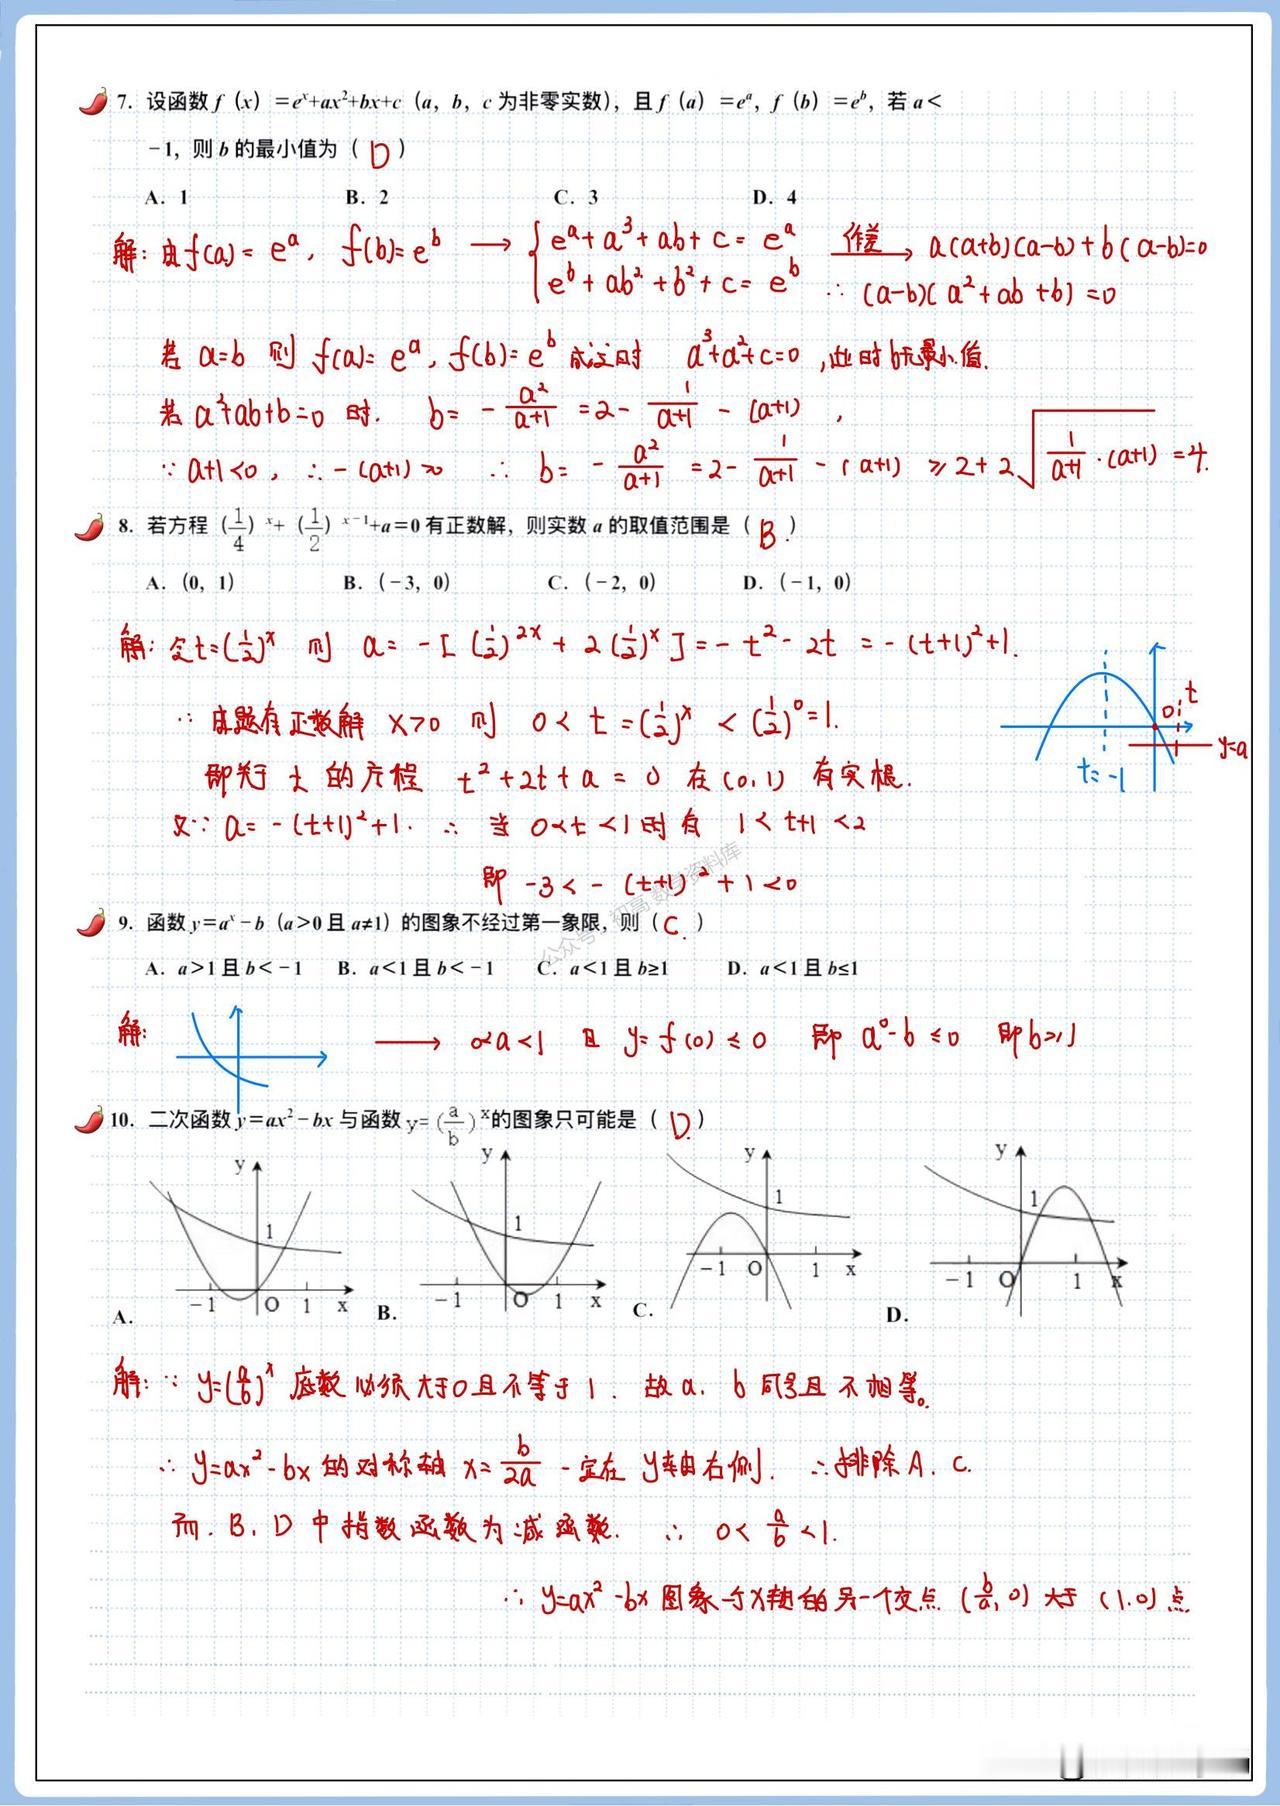 7. 设函数 f（x）＝eˣ+ax²+bx+c（a，b，c 为非零实数），且 f（a）＝eᵃ，f（b）＝eᵇ，若 a＜
－1，则 b 的最小值为（ D ）
A．1 B．2 C．3 D．4
解：由f(a)= eᵃ，f(b)=eᵇ → { eᵃ+a³+ab+c=eᵃ 作差→ a(a+b)(a-b)+b(a-b)=0
eᵇ+ab²+b²+c=eᵇ ∴ (a-b)(a²+ab+b)=0
若 a=b 则 f(a)=eᵃ,f(b)=eᵇ 成立时 a³+a²+c=0 ,此时b无最小值.
若 a²+ab+b=0 时. b= - a²/(a+1) =2- 1/(a+1) - (a+1) ,
∵ a+1<0, ∴ -(a+1)>0 ∴ b= - a²/(a+1) =2- 1/(a+1) -(a+1) ≥2+2√(1/(a+1)·(a+1)) =4.
8. 若方程（1/4）ˣ+（1/2）ˣ⁻¹+a＝0 有正数解，则实数 a 的取值范围是（ B ）
A．（0，1） B．（－3，0） C．（－2，0） D．（－1，0）
解：令t=(1/2)ˣ 则 a= -[(1/2)²ˣ+2(1/2)ˣ]=-t²-2t =-(t+1)²+1.
∵ 原题有正数解 x>0 则 0<t=(1/2)ˣ<(1/2)⁰=1.
0 t
y=a
t=-1
即关于 t 的方程 t²+2t+a=0 在(0,1) 有实根.
又∵ a=-(t+1)²+1. ∴ 当 0<t<1时有 1<t+1<2
即 -3<-(t+1)²+1<0
公众号：初高数学资料库
9. 函数 y＝aˣ－b（a＞0 且 a≠1）的图象不经过第一象限，则（ C ）
A．a＞1 且 b＜－1 B．a＜1 且 b＜－1 C．a＜1 且 b≥1 D．a＜1 且 b≤1
解： → 0<a<1 且 y=f(0)≤0 即 a⁰-b≤0 即b≥1
10. 二次函数 y＝ax²－bx 与函数 y=（a/b）ˣ的图象只可能是（ D ）
y 1 －1 O 1 x A．
y 1 －1 O 1 x B．
y 1 －1 O 1 x C．
y 1 －1 O 1 x D．
解：∵ y=(a/b)ˣ 底数必须大于0且不等于1. 故a. b同号且不相等。
∴ y=ax²-bx 的对称轴 x= b/2a 一定在 y轴右侧. ∴排除A. C.
而. B. D 中指数函数为减函数. ∴ 0< a/b <1.
∴ y=ax²-bx 图象与x轴的另一个交点 (b/a, 0) 大于 (1.0)点